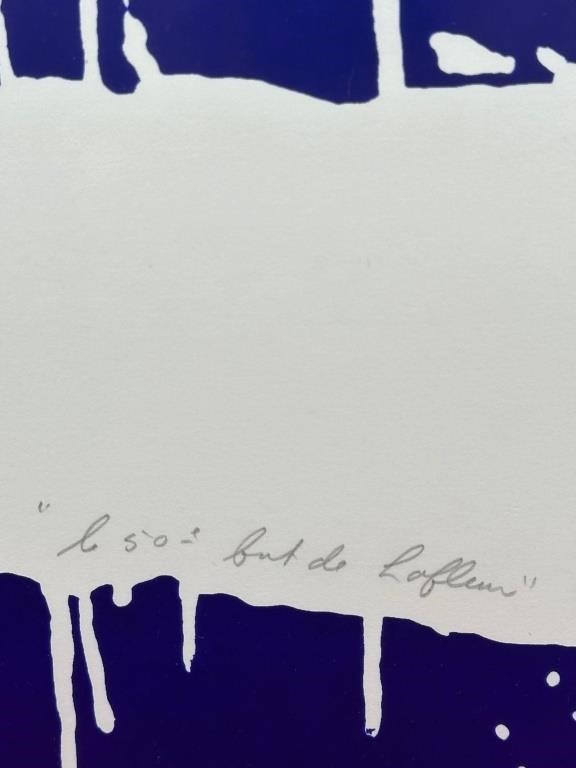 "le 50-è but de Lafleur"